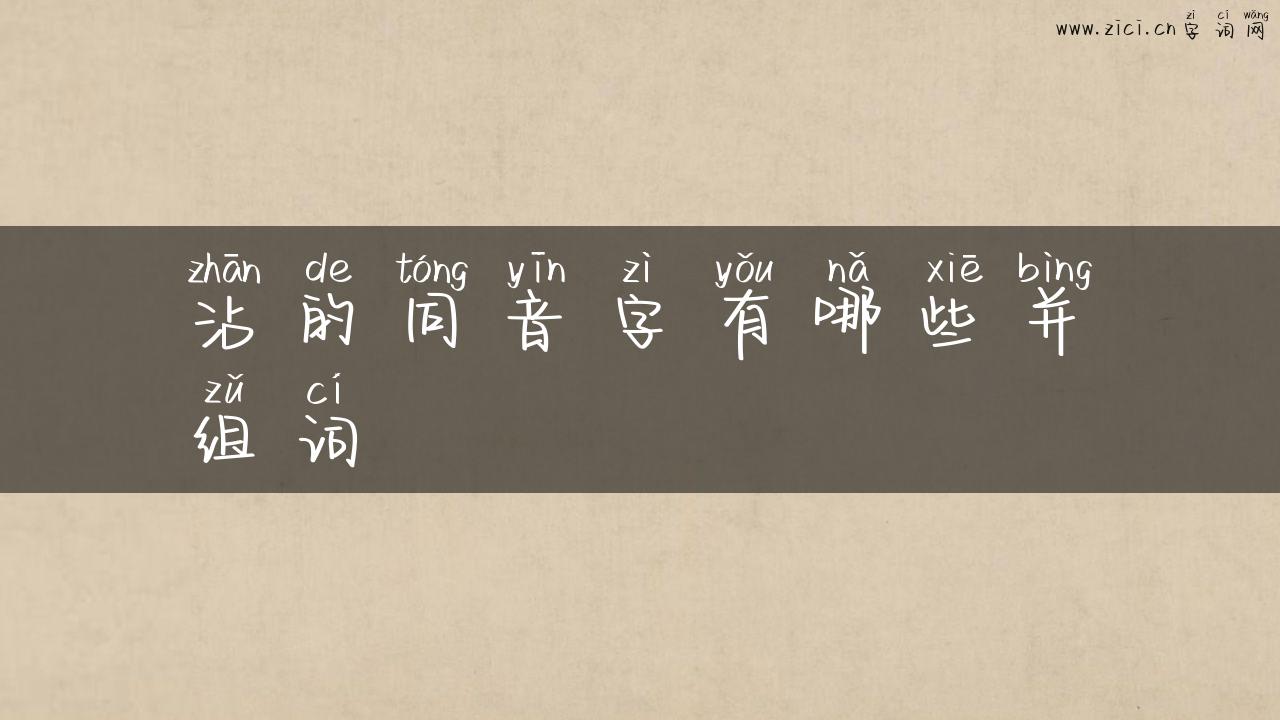 zì cí wǎng
www.zici.cn 字词网
zhān de tóng yīn zì yǒu nǎ xiē bìng
沾的同音字有哪些并
zǔ cí
组词